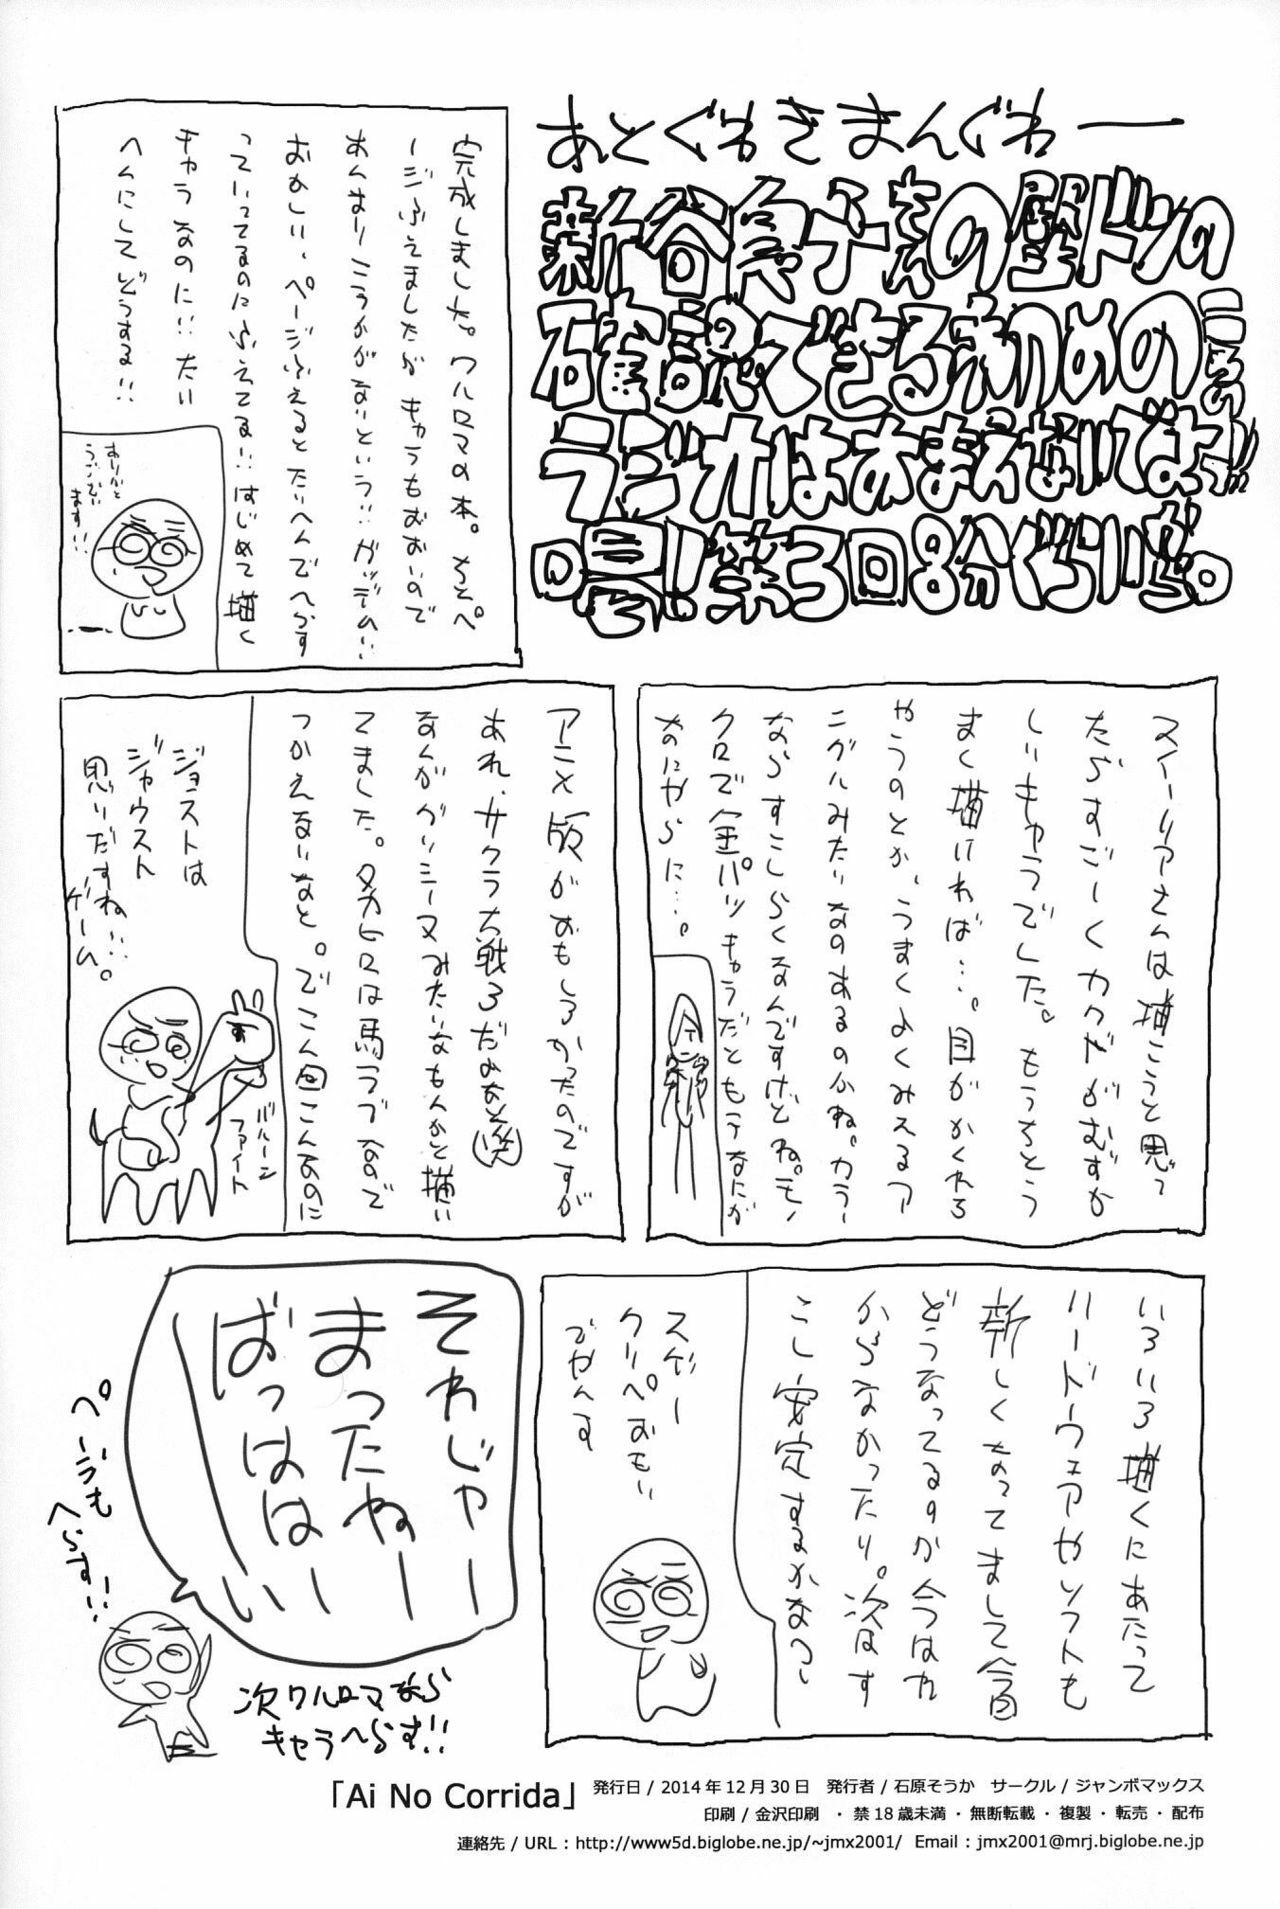 あとぐわきまんぐわー
新谷良子さんの壁ドンの
確認できる初めの
ラジオはあまえないでよっ!!
喝!! 第3回8分ぐらいから
完成しました。ワルロマの本。ちとペ
ージふえましたがキャラもおおいので
あんまりこうかがないという…ガッデム…
おかしい、ページふえるとたいへんでへらす
っていってるのにふえてる…はじめて描く
キャラなのに…たい
へんにしてどうする…
ありがと
うございい
ます!!
スイーリアさんは描こうと思っ
たらすごーくカクがむずか
しいキャラでした。もうちとう
まく描ければ…。目がかくれる
やつのとか、うまくよくみえるア
ングルみたいなのあるのかね。カラー
ならすこしらくなんですけどね。モノ
クロで金パツキャラだともうなにが
なにやらに…。
アニメ版がおもしろかったのですが
あれ、サクラ大戦3だよなと(笑)
なんかグリシーヌみたいなもんかと描い
てました。タカヒロは馬ラブなので
つかえるいなと。でこん回こんなのに
ジョストは
ジャウスト
思いだすね…
ゲーム。
バルーン
ファイト
いろいろ描くにあたって
ハードウェアやソフトも
新しくなってまして今回
どうなってるすか今はわ
からなかったり。次はす
こし安定するかなっつ
スゲー
クリペおもい
でやんす
それじゃー
まったねー
ばっはは
ーい
ページも
へらす!!
次ワルロマなら
キャラへらす!!
「Ai No Corrida」 発行日 / 2014年12月30日　発行者 / 石原そうか　サークル / ジャンボマックス
印刷 / 金沢印刷　・禁18歳未満・無断転載・複製・転売・配布
連絡先 / URL : http://www5d.biglobe.ne.jp/~jmx2001/　Email : jmx2001@mrj.biglobe.ne.jp